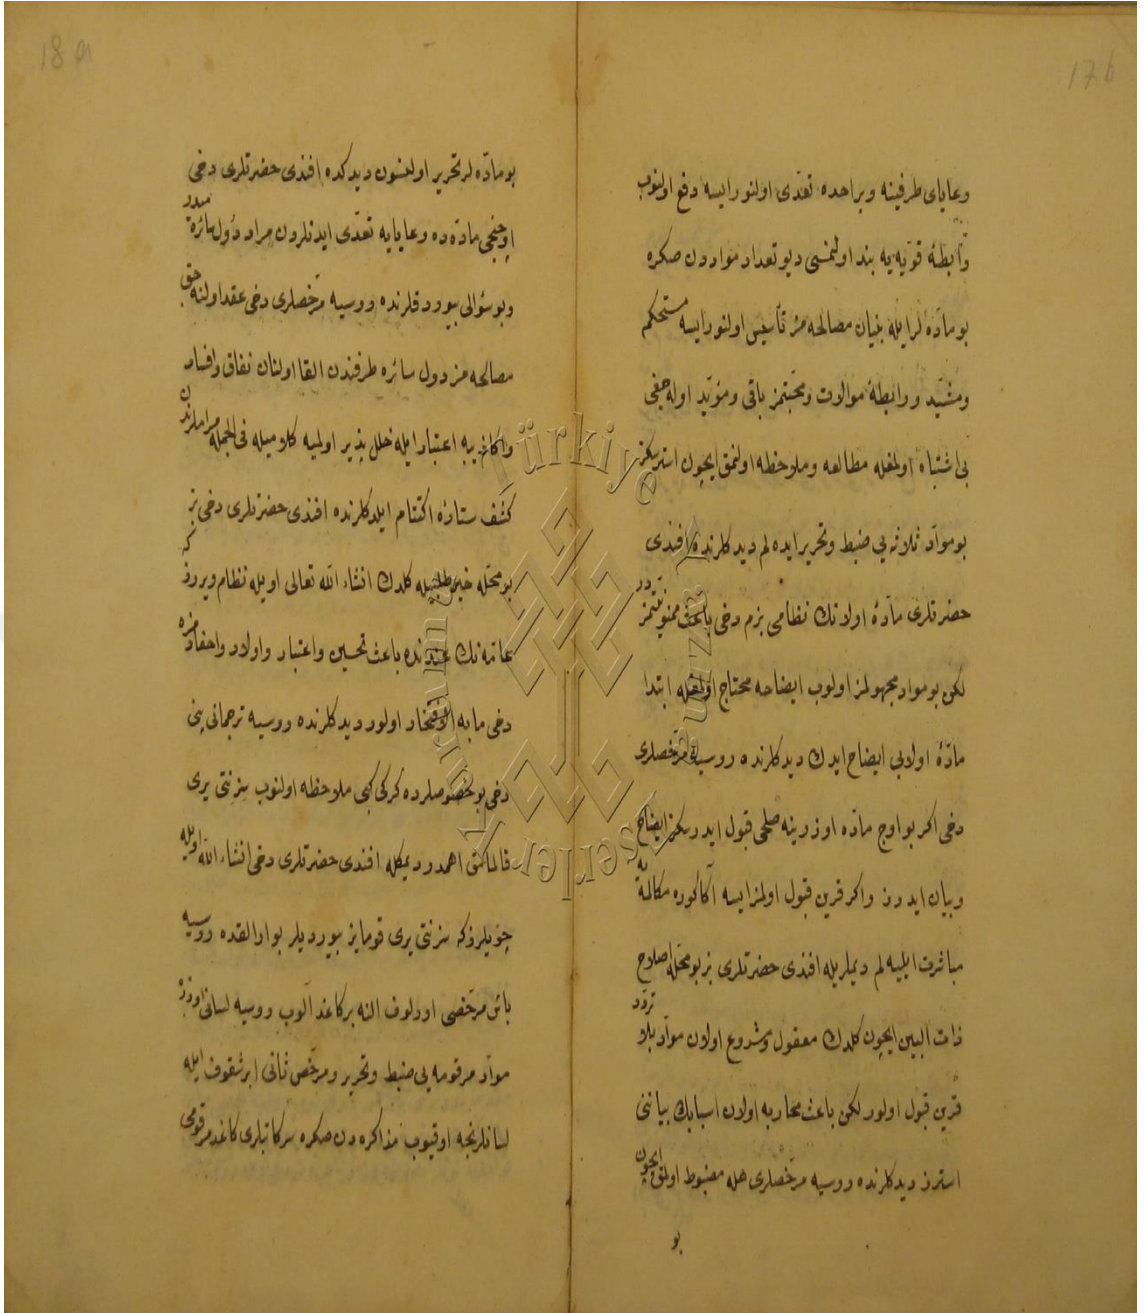 17b
رعایای طرفینه و براحده تعدّی اولنور ایسه دفع اولنوب
رابطۀ قویّه‌یه بند اولنمسی دیو تعداد مواددن صکره
بو مادّه‌لر ایله بنیان مصالحه‌مز تأسیس اولنور ایسه مستحکم
ومشیّد و رابطۀ موالات و محبتمز باقی و مؤیّد اوله‌جغی
بی اشتباه اولمغله مطالعه و ملاحظه اولنمق ایچون استرسکز
بو موادّ ثلاثه‌یی ضبط و تحریر ایده‌لم دیدکلرنده افندی
حضرتلری مادّۀ اولانك نظامی بزم دخی باعث ممنونیتمزدر
لکن بو مواد مجهولمز اولوب ایضاحه محتاج اولمغله ابتدا
مادّۀ اولایی ایضاح ایدك دیدکلرنده روسیه مرخصلری
دخی اکر بو اوچ مادّه اوزرینه صلحی قبول ایدرسکز ایضاح
و بیان ایدرز و اکر قرین قبول اولمز ایسه اکا کوره مکالمه‌یه
مباشرت ایلیه‌لم دیملریله افندی حضرتلری بز بو محلّه اصلاح
ذات البین ایچون کلدك معقول و مشروع اولان موادّ بلا تردّد
قرین قبول اولور لکن باعث محاربه اولان اسبابك بیاننی
استرز دیدکلرنده روسیه مرخصلری هله مضبوط اولمق ایچون
بو
18a
بو مادّه‌لر تحریر اولنسون دیدکده افندی حضرتلری دخی
اوچنجی مادّه‌ده رعایایه تعدّی ایدنلردن مراد دول سائره میدر
دیو سؤالی بیوردقلرنده روسیه مرخصلری دخی عقد اولنه‌جق
مصالحه‌مز دول سائره طرفندن القا اولنان نفاق و افساد
و اکاذیبه اعتبار ایله خلل پذیر اولمیه کلامیله فی الجمله مراملرندن
کشف ستارۀ اکتتام ایلدکلرنده افندی حضرتلری دخی بز
بو محلّه خیر طلبیله کلدك انشاء الله تعالی اویله نظام ویررز که
عامّه‌نك عندنده باعث تحسین و اعتبار و اولاد و احفادمزه
دخی ما به الافتخار اولور دیدکلرنده روسیه ترجمانی پنی
دخی بو خصوصلرده کرکی کبی ملاحظه اولنوب سزنتی یری
قالمامق اهمدر دیمکله افندی حضرتلری دخی انشاء الله اویله
چویلرز که سزنتی یری قومایز بیوردیلر بو ارالقده روسیه
باش مرخصی اورلوف النه بر کاغد الوب روسیه لسانی اوزره
موادّ مرقومه‌یی ضبط و تحریر و مرخص ثانی ابرشقوف ایله
لسانلرنجه اوقیوب مذاکره‌دن صکره سرکاتبلری کاغد مرقومی
Türkiye Yazma Eserler Kurumu